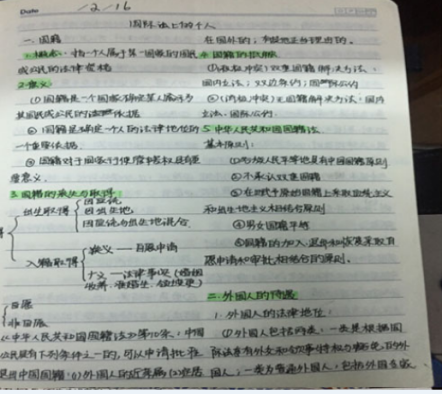 Date 12/16
国际法上的个人
一、国籍
1.概念：指个人属于某一国家的国民
或公民的法律资格
2.意义：
(1)国籍是一个国家确定某人属于
其国民或公民的法律依据
②国籍是确定一个人的法律地位的
一个重要依据
③国籍对于国家行使管辖权具有重
要意义
3.国籍的丧失与取得：
出生取得
因血统
因出生地
因血统与出生地混合
入籍取得
狭义——自愿申请
广义——法律事实(婚姻
收养
自愿
非自愿
《中华人民共和国国籍法》第10条：中国
公民具有下列条件之一的，可以申请批准
退出中国国籍：(1)外国人的近亲属(2)定居
在国外的；有其它正当理由的。
4.国籍的抵触
①(积极冲突)双重国籍 解决方法：
国内立法；双边条约；国际公约
②(消极冲突)无国籍解决方法：国内
立法、国际公约。
5.中华人民共和国国籍法
基本原则：
①各族人民平等地具有中国国籍原则
②不承认双重国籍
③在出生
和出生地主义相结合原则
④男女国籍平等
⑤国籍的加入、退出和恢复采取自
愿申请和审批相结合的原则。
二、外国人的待遇
1.外国人的法律地位：
①外国人包括两类：一类是根据国
际法享有外交
国人，一类为普通外国人，包括外国